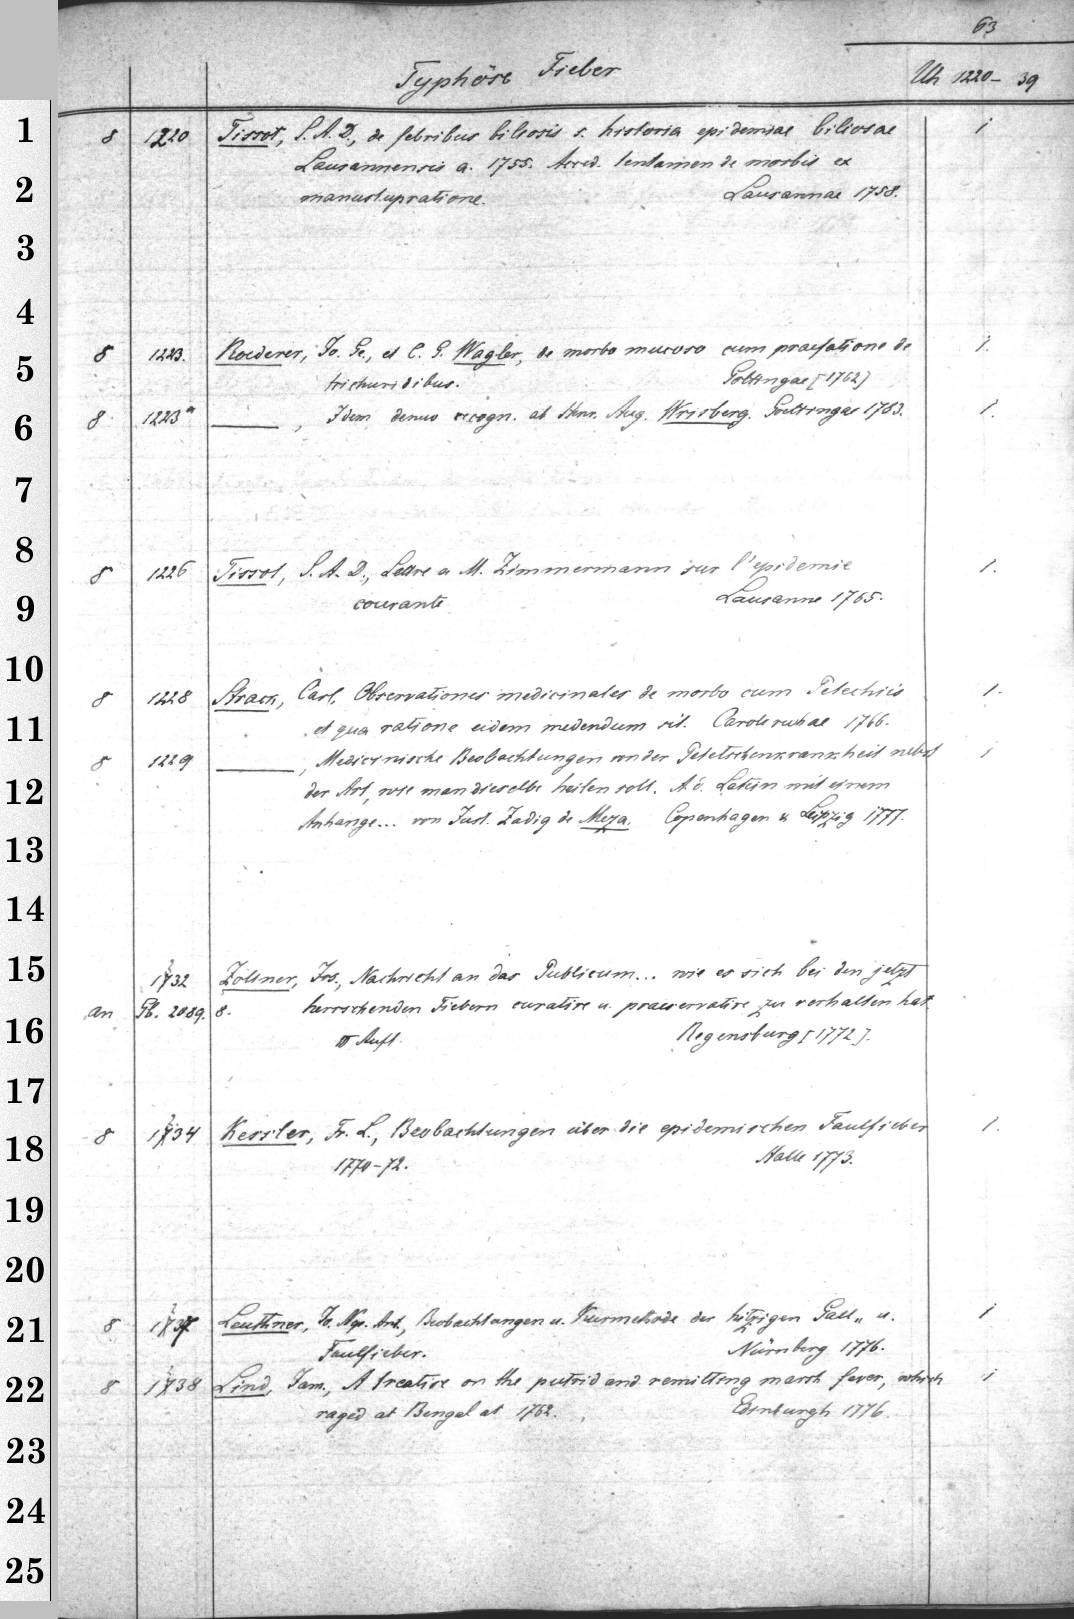 63
Typhöse Fieber Uh 1220-39
1 8 1220 Tissot, S. A. D., de febribus biliosis s. historia epidemiae biliosae 1
Lausannensis a. 1755. Acced. tentamen de morbis ex
2 manustupratione. Lausannae 1758.
3
4
5 8 1223. Roederer, Jo. Ge., et C. G. Wagler, de morbo mucoso cum praefatione de 1.
trichuridibus. Gottingae [1762]
6 8 1223a ———, Idem denuo recogn. ab Henr. Aug. Wrisberg. Goettingae 1783. 1.
7
8
8 1226 Tissot, S. A. D., Lettre a M. Zimmermann sur l'epidemie 1.
9 courante Lausanne 1765.
10
8 1228 Strack, Carl, Observationes medicinales de morbo cum Petechiis 1.
11 et qua ratione eidem medendum sit. Carolsruhae 1766.
8 1229 ———, Medicinische Beobachtungen von der Petetschenkrankheit nebst 1
12 der Art, wie man dieselbe heilen soll. A. d. Latein mit einem
Anhange... von Just. Zadig de Meza. Copenhagen u. Leipzig 1777.
13
14
15 1232 Zollner, Jos., Nachricht an das Publicum... wie es sich bei den jetzt
an Gb. 2089. 8. herrschenden Fiebern curative u. praeservative zu verhalten hat.
16 III Aufl. Regensburg [1772].
17
8 1234 Kessler, Fr. L., Beobachtungen über die epidemischen Faulfieber 1.
18 1770-72. Halle 1773.
19
20
21 8 1237 Leuthner, Jo. Np. Ant., Beobachtungen u. Kurmethode der hitzigen Gall- u. 1
Faulfieber. Nürnberg 1776.
22 8 1238 Lind, Jam., A treatise on the putrid and remitting marsh fever, which 1
raged at Bengal at 1762. Edinburgh 1776.
23
24
25